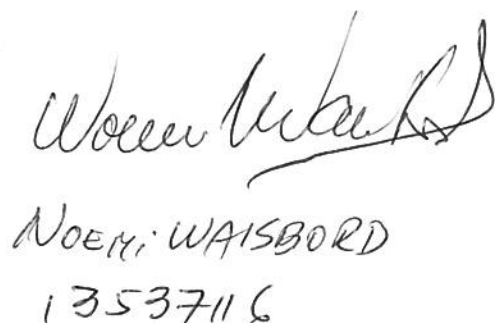 Noemi Waisbord
NOEMi WAISBORD
13537116